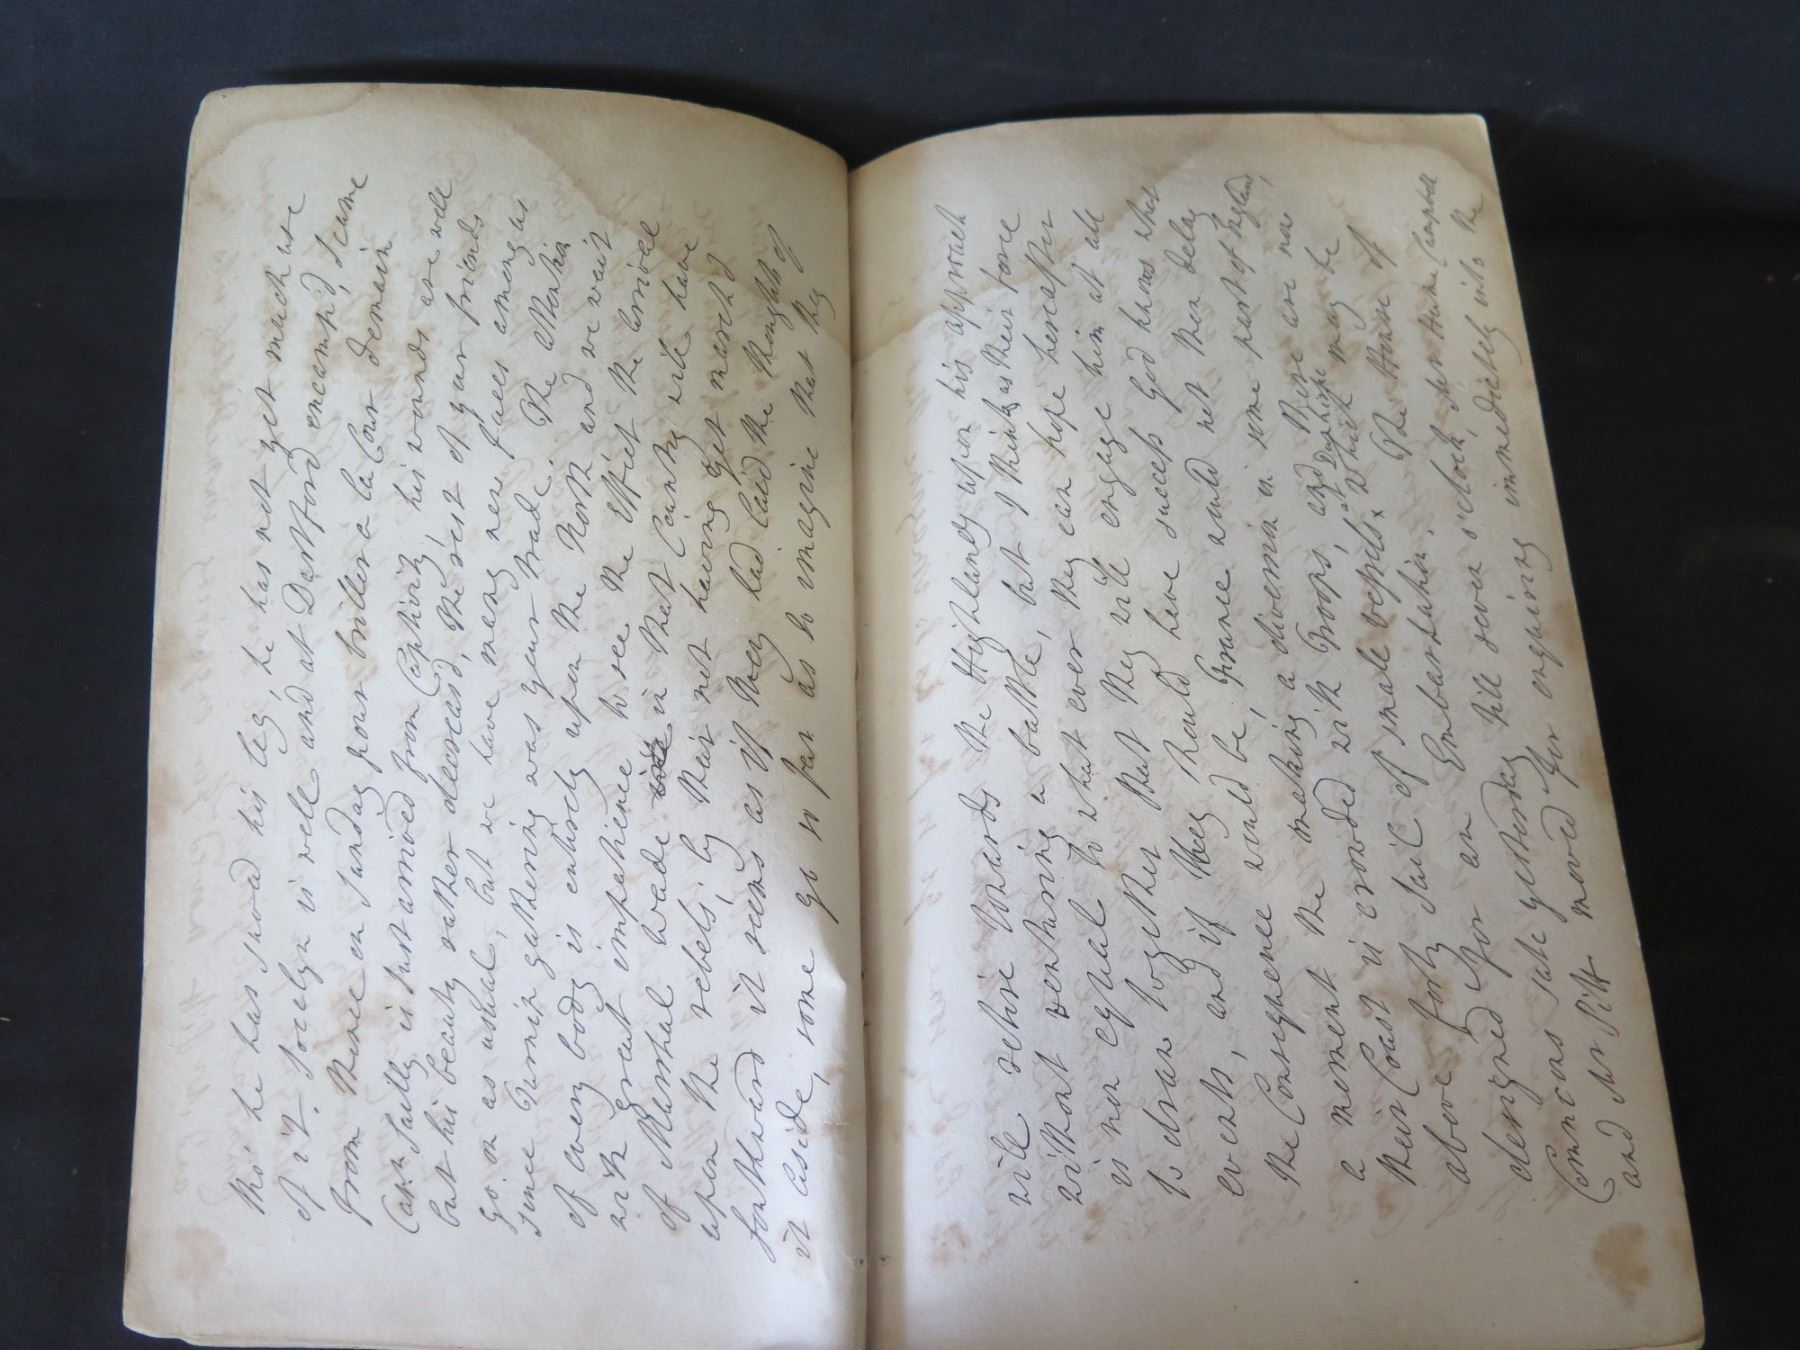 tho' he has saved his leg, he has not yet much use
of it. Jocelyn is well and at Dartford encamp'd, I came
from thence on Sunday pour briller a la Cour demain
Capn. Sailly is just arrived from Captivity, his wounds are well
but his beauty rather decreas'd, The rest of your friends
go on as usual, but we have many new faces among us
since Turnip gathering was your trade. The attention
of every body is entirely upon the North and we wait
with great impatience to see the Effect the arrival
of Marshal Wade in that Country will have
upon the rebels, by their not having yet march'd
southward it seems as if they had laid the thoughts of
it aside, some go so far as to imagine that they
will retire towards the Highlands upon his approach
without venturing a battle, but I think as their force
is now equal to what ever they can hope hereafter
to draw together that they will engage him at all
events, and if they should have success God knows what
the Consequence would be, France would not then delay
a moment the making a divertion in some part of England,
their Coast is crowded with Troops, and there are now
above forty Sail of small vessels x at Dunkirk which may be
designed for an Embarkation. The House of
Commons sate yesterday till seven o'clock, Mr Hume Campbell
and Mr Pitt moved for enquiring immediately into the